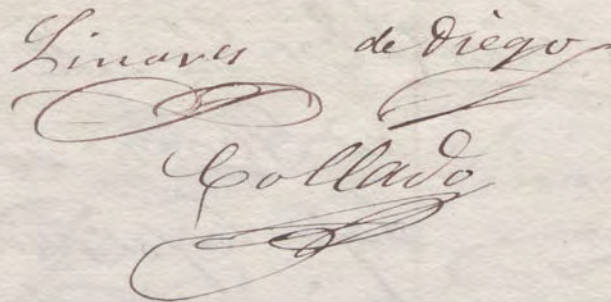 Linares de Diego
Collado